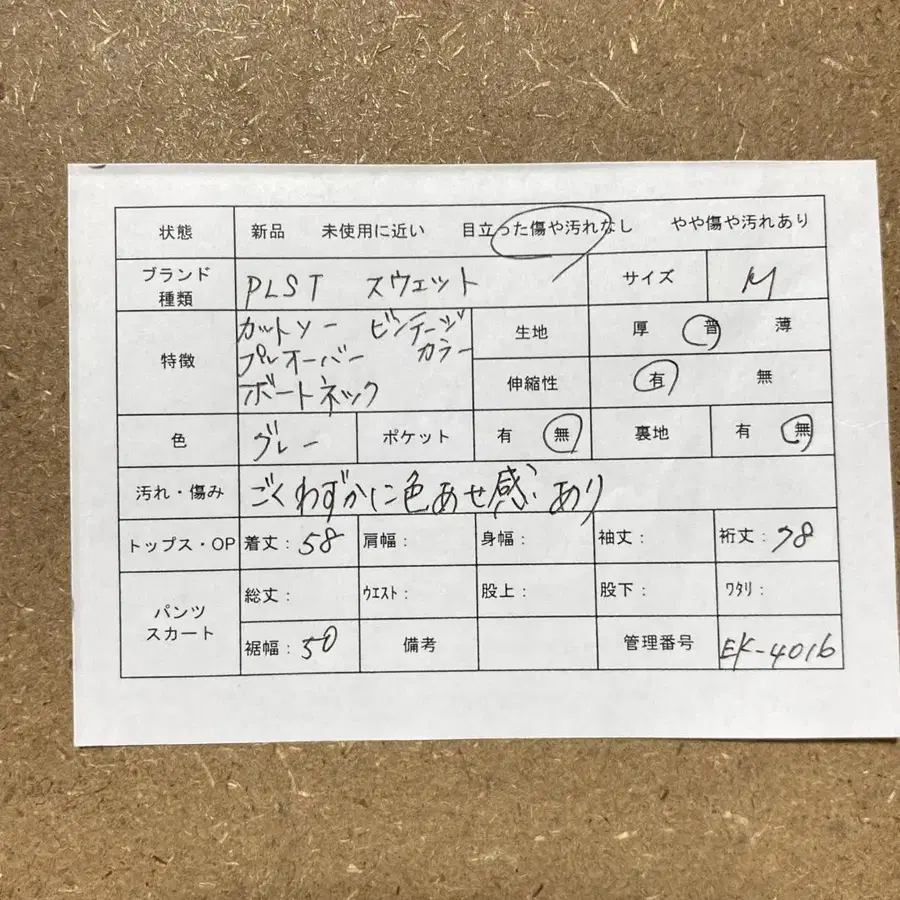 状態 新品 未使用に近い 目立った傷や汚れなし やや傷や汚れあり
ブランド 種類 PLST スウェット サイズ M
特徴 カットソー ビンテージ
プルオーバー カラー
ボートネック
生地 厚 普 薄
伸縮性 有 無
色 グレー ポケット 有 無 裏地 有 無
汚れ・傷み ごくわずかに色あせ感あり
トップス・OP 着丈：58 肩幅： 身幅： 袖丈： 裄丈：78
パンツ スカート 総丈： ウエスト： 股上： 股下： ワタリ：
裾幅：50 備考 管理番号 EK-4016